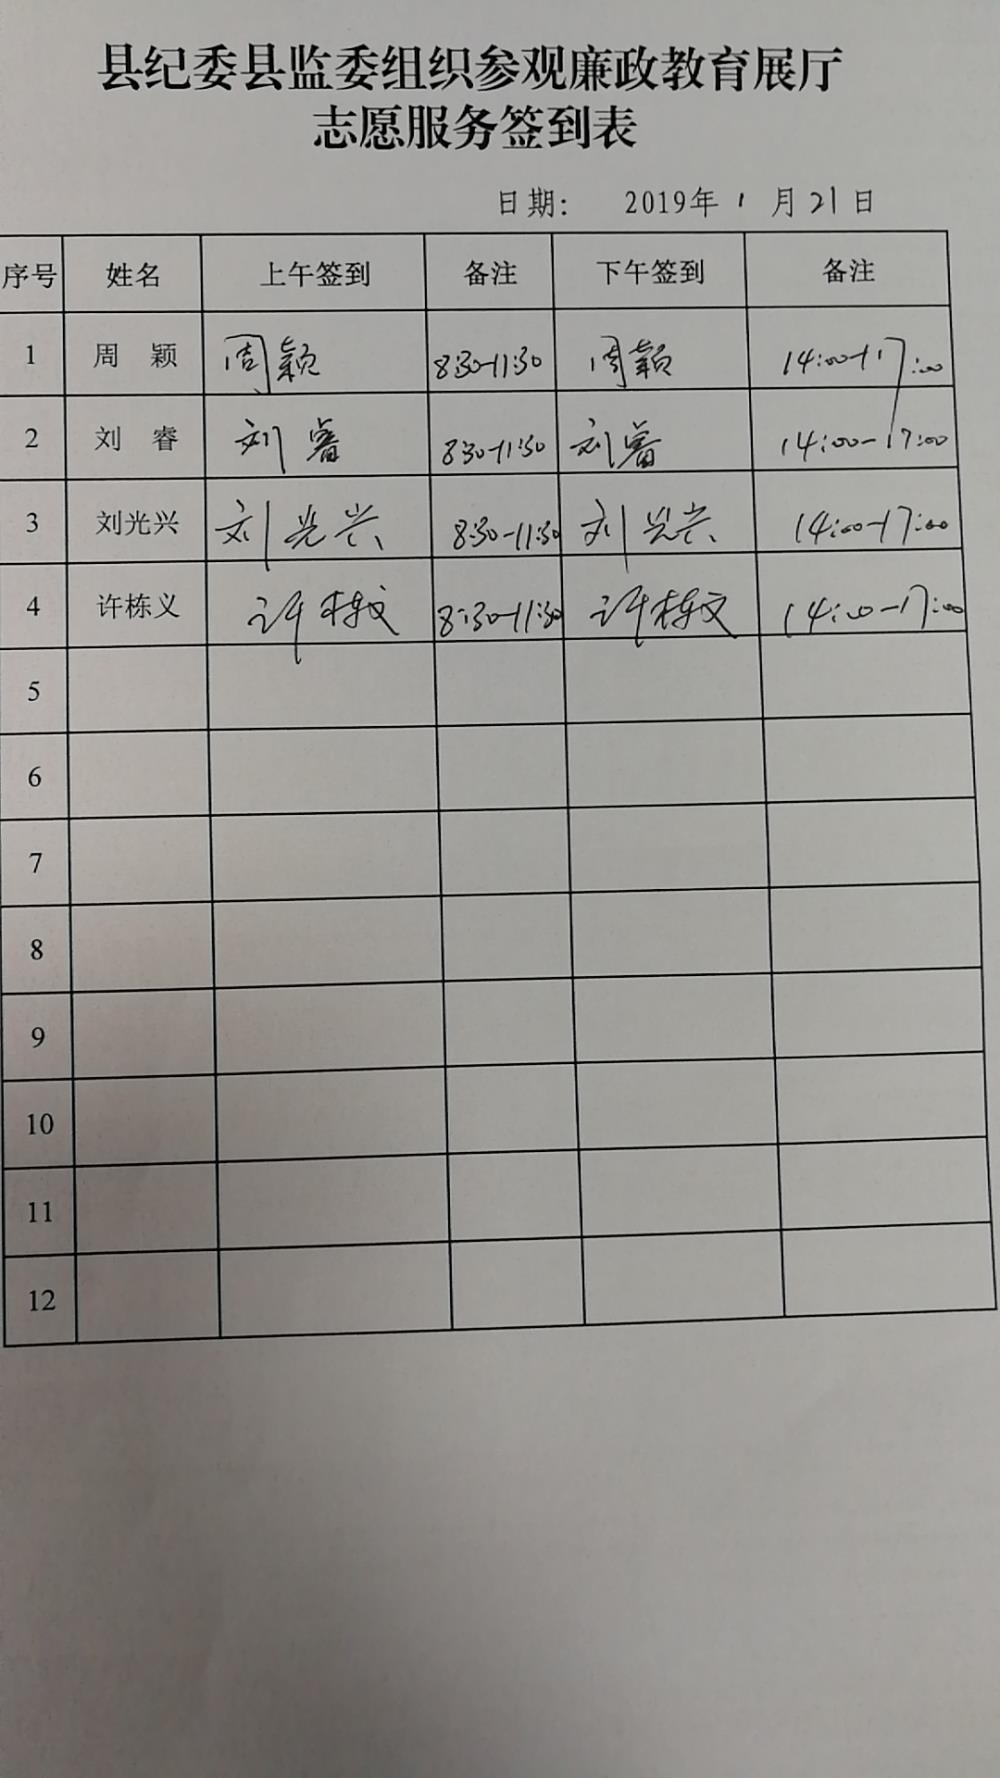 县纪委县监委组织参观廉政教育展厅
志愿服务签到表
日期: 2019年 1 月 21 日
序号 姓名 上午签到 备注 下午签到 备注
1 周 颖 周颖 8:30-11:30 周颖 14:00-17:00
2 刘 睿 刘睿 8:30-11:30 刘睿 14:00-17:00
3 刘光兴 刘光兴 8:30-11:30 刘光兴 14:00-17:00
4 许栋义 许栋义 8:30-11:30 许栋义 14:00-17:00
5
6
7
8
9
10
11
12